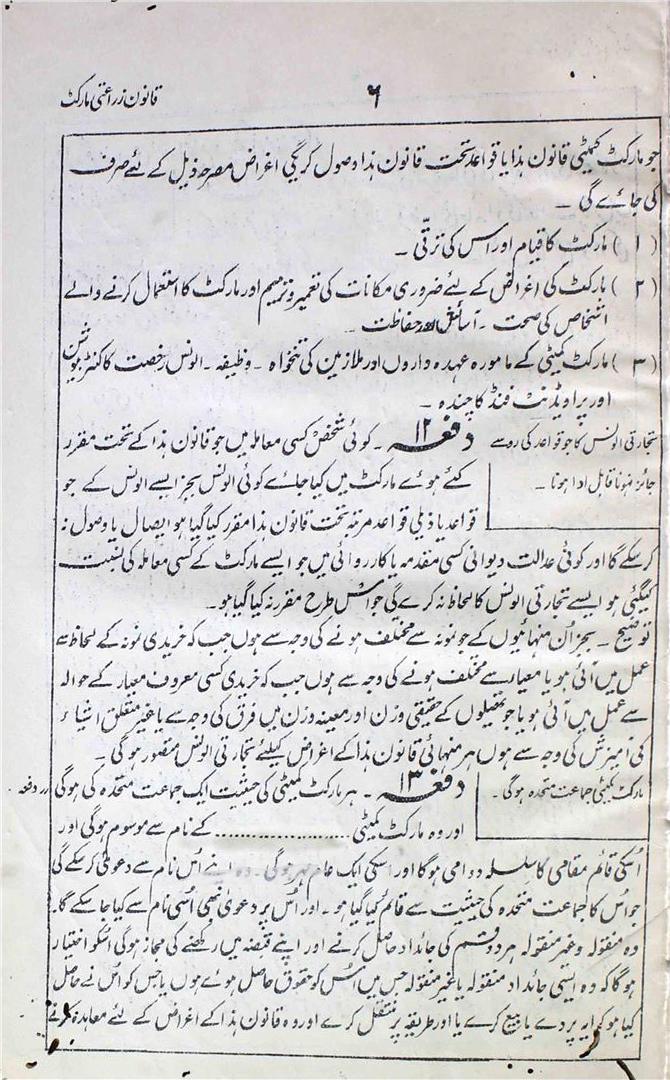 قانون زراعتی مارکٹ
۶
جو مارکٹ کمیٹی قانون ہذا یا قواعد تحت قانون ہذا وصول کریگی اغراض مصرحہ ذیل کے لئے صرف
کی جائے گی ۔
( ۱ ) مارکٹ کا قیام اور اس کی ترقّی ۔
( ۲ ) مارکٹ کی اغراض کے لئے ضروری مکانات کی تعمیر و ترمیم اور مارکٹ کا استعمال کرنے والے
اشخاص کی صحت ۔ آسائش اور حفاظت ۔
( ۳ ) مارکٹ کمیٹی کے مامورہ عہدہ داروں اور ملازمین کی تنخواہ ۔ وظیفہ ۔ الونس رخصت کا کنٹریبیوشن
اور پراویڈنٹ فنڈ کا چندہ ۔
تجارتی الونس کا جو قواعد کی رو سے
جائز نہ ہونا قابل ادا ہونا ۔
دفعہ ۱۲ ۔ کوئی شخص کسی معاملہ میں جو قانون ہذا کے تحت مقرر
کئے ہوئے مارکٹ میں کیا جائے کوئی الونس بجز ایسے الونس کے جو
قواعد یا ذیلی قواعد مرتبہ تحت قانون ہذا مقرر کیا گیا ہو ایصال یا وصول نہ
کر سکے گا اور کوئی عدالت دیوانی کسی مقدمہ یا کارروائی میں جو ایسے مارکٹ کے کسی معاملہ کی نسبت
کیگئی ہو ایسے تجارتی الونس کا لحاظ نہ کرے گی جو اس طرح مقرر نہ کیا گیا ہو ۔
توضیح ۔ بجز اُن منہائیوں کے جو نمونہ سے مختلف ہونے کی وجہ سے ہوں جب کہ خریدی نمونہ کے لحاظ سے
عمل میں آئی ہو یا معیار سے مختلف ہونے کی وجہ سے ہوں جب کہ خریدی کسی معروف معیار کے حوالہ
سے عمل میں آئی ہو یا جو تھیلوں کے حقیقی وزن اور معینہ وزن میں فرق کی وجہ سے یا غیر متعلق اشیاء
کی آمیزش کی وجہ سے ہوں ہر منہائی قانون ہذا کے اغراض کیلئے تجارتی الونس متصور ہوگی ۔
مارکٹ کمیٹی جماعت متحدہ ہوگی ۔
دفعہ ۱۳ ۔ ہر مارکٹ کمیٹی کی حیثیت ایک جماعت متحدہ کی ہوگی
اور وہ مارکٹ کمیٹی .................... کے نام سے موسوم ہوگی اور
اُسکی قائم مقامی کا سلسلہ دوامی ہوگا اور اسکی ایک عام مہر ہوگی ۔ وہ اپنے اُس نام سے دعویٰ کر سکے گی
جو اُس کا جماعت متحدہ کی حیثیت سے قائم کیا گیا ہو ۔ اور اُس پر دعویٰ بھی اُسی نام سے کیا جا سکے گا ۔
وہ منقولہ و غیر منقولہ ہر دو قسم کی جائداد حاصل کرنے اور اپنے قبضہ میں رکھنے کی مجاز ہوگی اُسکو اختیار
ہوگا کہ وہ ایسی جائداد منقولہ یا غیر منقولہ جس میں اُس کو حقوق حاصل ہوئے ہوں یا جس کو اُس نے حاصل
کیا ہو کرایہ پر دے یا بیع کرے یا اور طریقہ پر منتقل کرے اور وہ قانون ہذا کے اغراض کے لئے معاہدہ کرنے